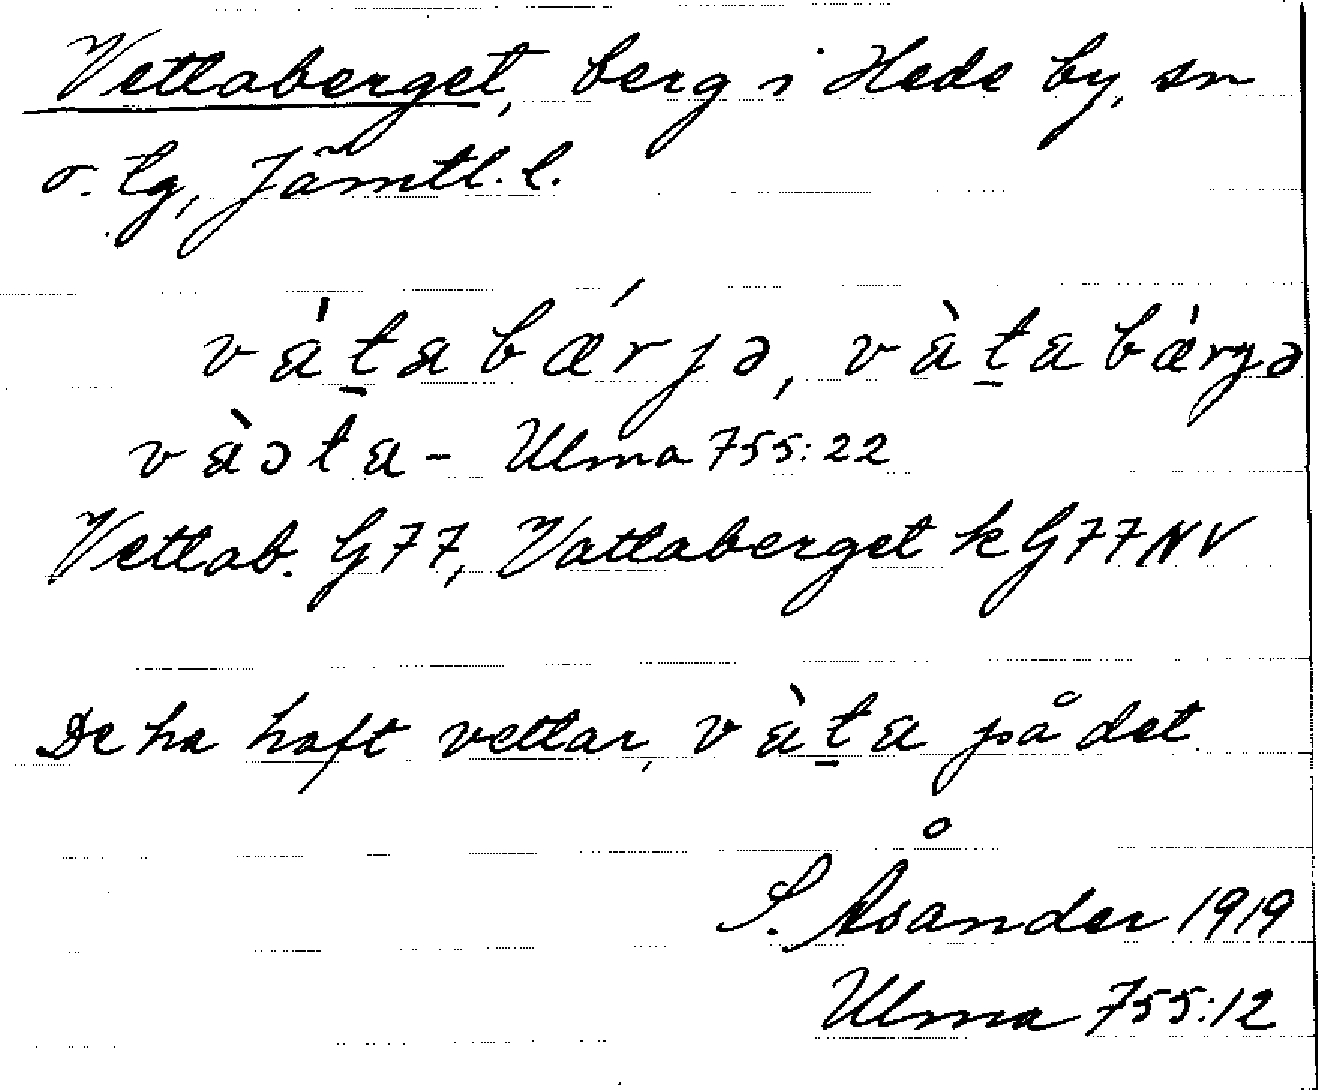 Vettaberget, berg i Hede by, sn
o. tg, Jämtl. l.
vátabǽrjə, vàtabǽrjə
vàəta- Ulma 755:22
Vettab. G77, Vattaberget k G77NV
De ha haft vettar, vàta på det
S. Åsander 1919
Ulma 755:12